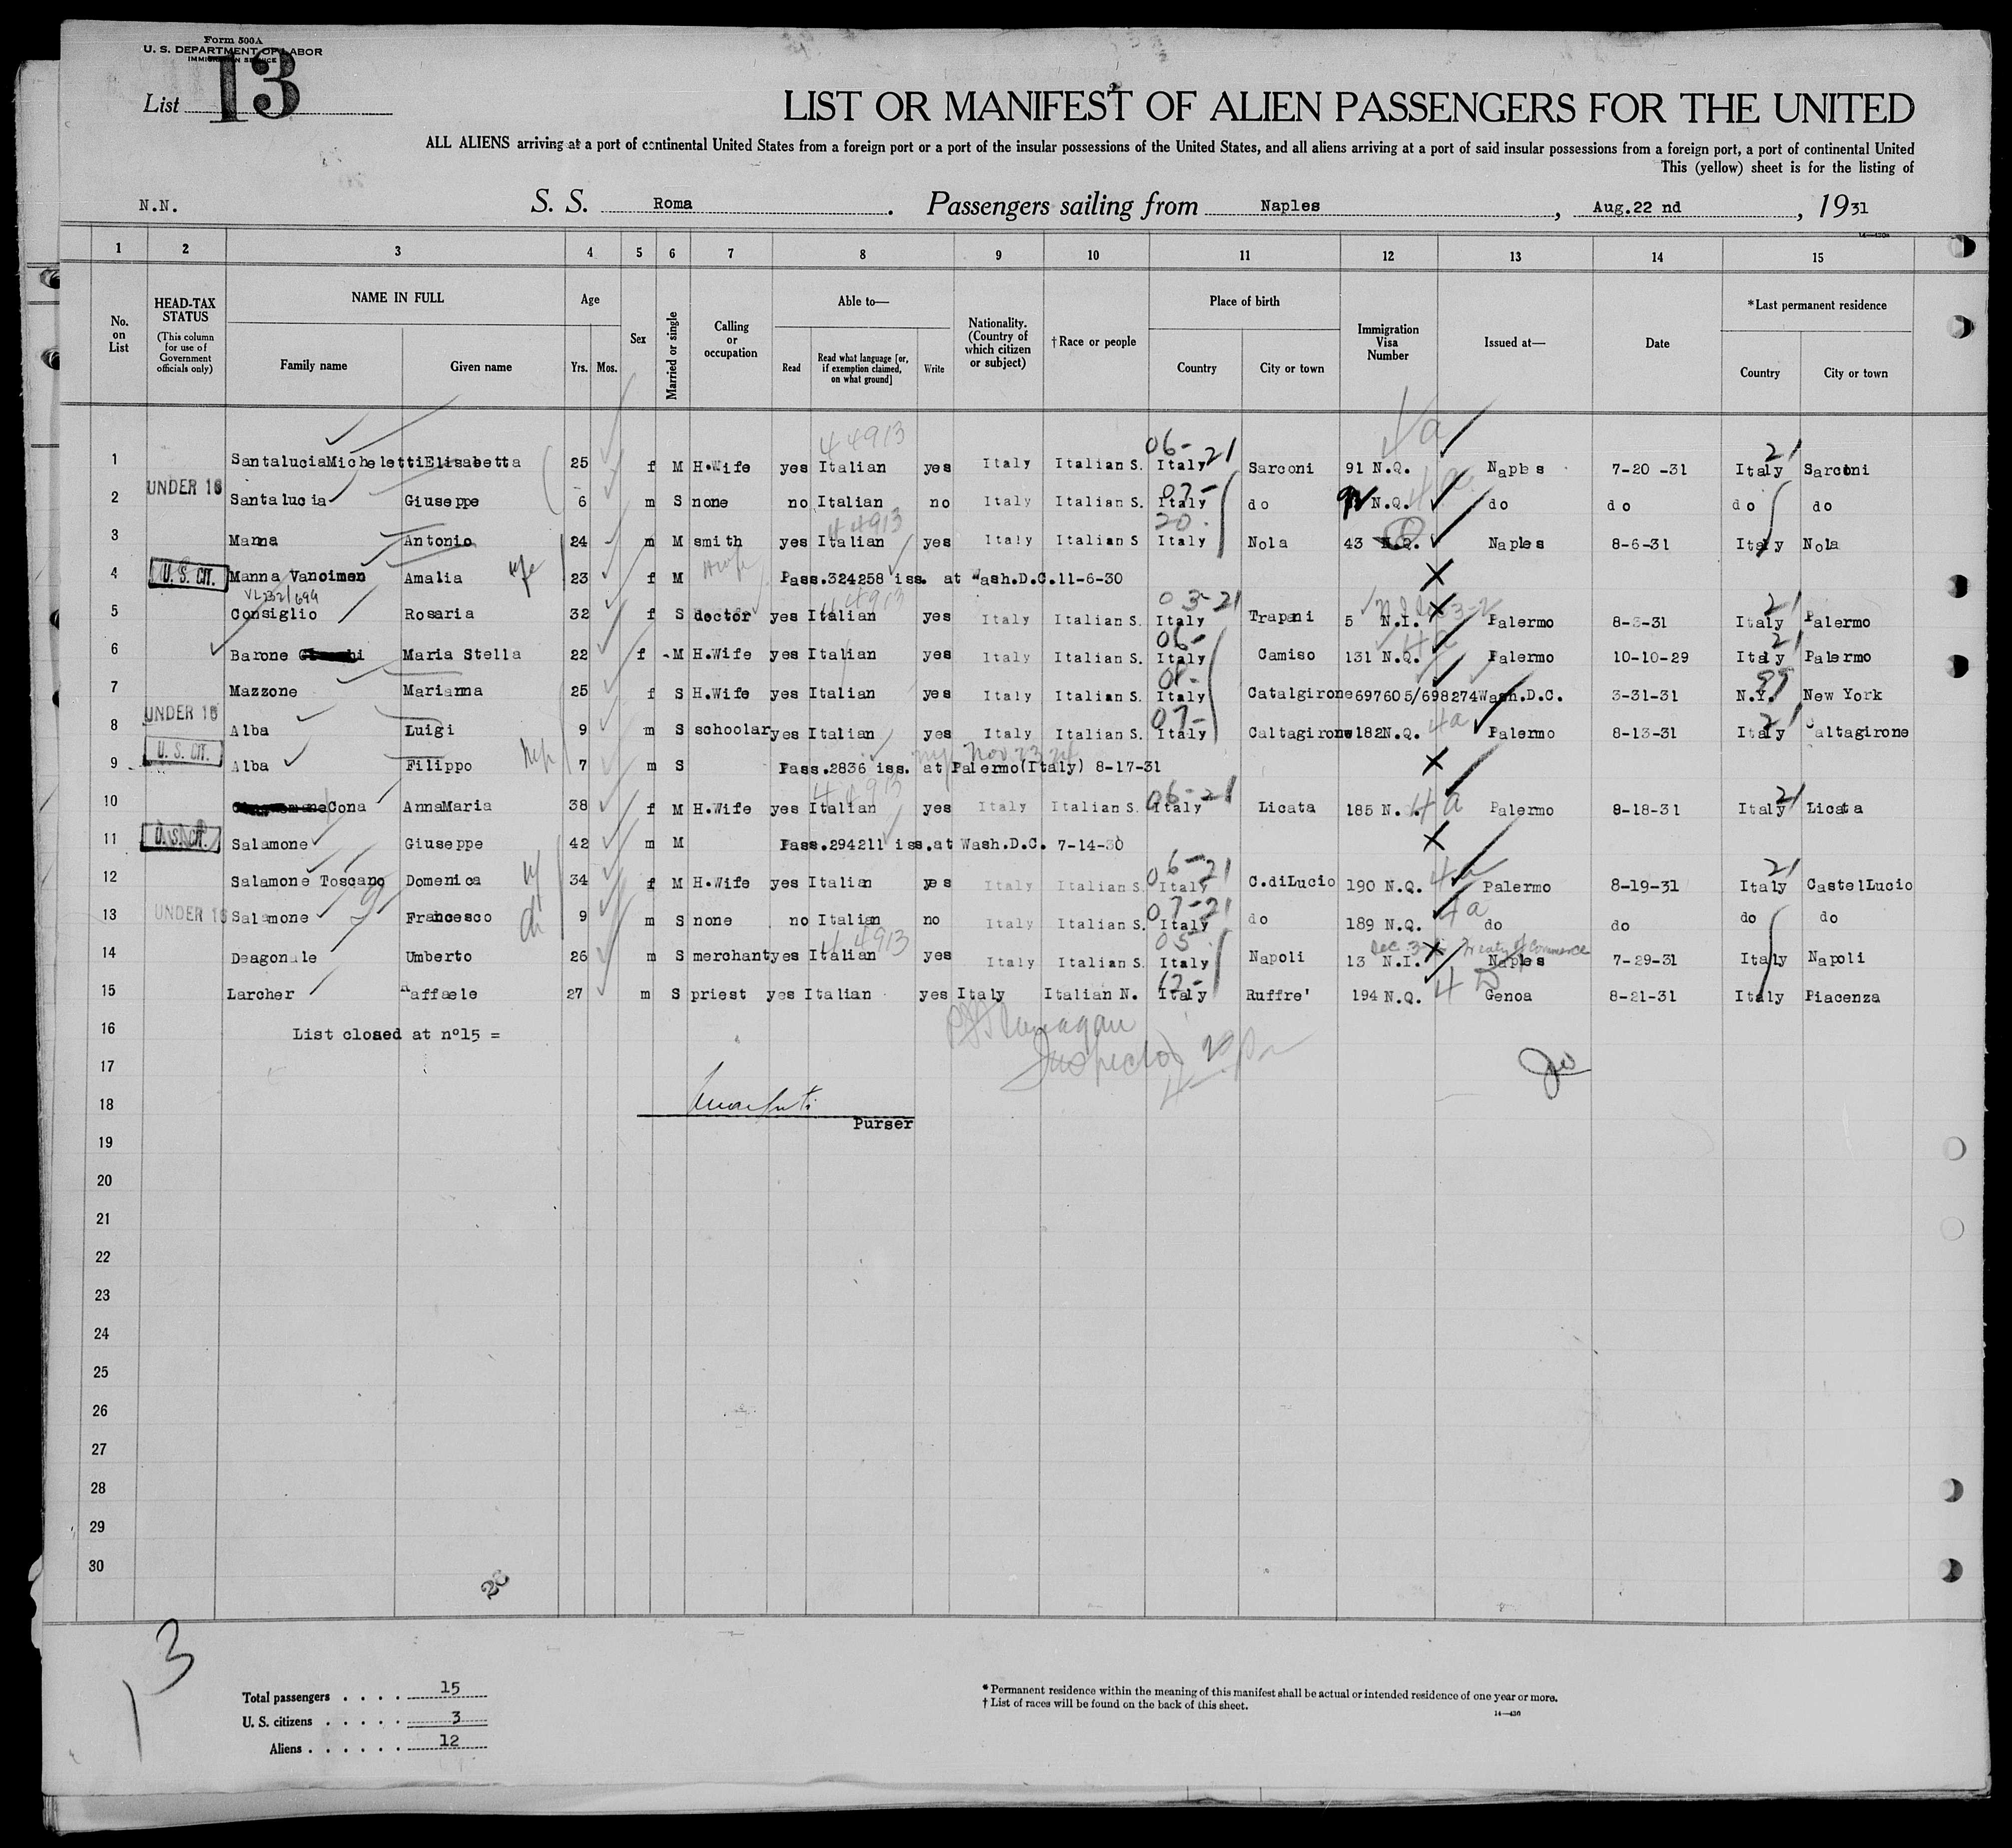 Form 500A
U. S. DEPARTMENT OF LABOR
IMMIGRATION SERVICE
List 13
LIST OR MANIFEST OF ALIEN PASSENGERS FOR THE UNITED
ALL ALIENS arriving at a port of continental United States from a foreign port or a port of the insular possessions of the United States, and all aliens arriving at a port of said insular possessions from a foreign port, a port of continental United
This (yellow) sheet is for the listing of
N.N. S. S. Roma. Passengers sailing from Naples, Aug.22 nd, 1931
1 2 3 4 5 6 7 8 9 10 11 12 13 14 15
No. on List
HEAD-TAX STATUS (This column for use of Government officials only)
NAME IN FULL Family name Given name
Age Yrs. Mos.
Sex
Married or single
Calling or occupation
Able to— Read Read what language [or, if exemption claimed, on what ground] Write
Nationality. (Country of which citizen or subject)
†Race or people
Place of birth Country City or town
Immigration Visa Number
Issued at—
Date
*Last permanent residence Country City or town
44913 06-21 4a 21
1 SantaluciaMichelettiElisabetta 25 f M H.Wife yes Italian yes Italy Italian S. Italy Sarconi 91 N.Q. Naples 7-20 -31 Italy Sarconi
UNDER 16 07- 4a
2 Santalucia Giuseppe 6 m S none no Italian no Italy Italian S. Italy do N.Q. do do do do
44913 20
3 Manna Antonio 24 m M smith yes Italian yes Italy Italian S Italy Nola 43 N.Q. Naples 8-6-31 Italy Nola
4 U. S. CIT. Manna Vancimen Amalia 23 f M Pass.324258 iss. at Wash.D.C.11-6-30
44913 03-21 3-2 21
5 Consiglio Rosaria 32 f S doctor yes Italian yes Italy Italian S. Italy Trapani 5 N.I. Palermo 8-3-31 Italy Palermo
06- 4a 21
6 Barone Maria Stella 22 f M H.Wife yes Italian yes Italy Italian S. Italy Camiso 131 N.Q. Palermo 10-10-29 Italy Palermo
7 Mazzone Marianna 25 f S H.Wife yes Italian yes Italy Italian S. Italy Catalgirone 697605/698274 Wash.D.C. 3-31-31 N.Y. New York
UNDER 16 07- 4a 21
8 Alba Luigi 9 m S schoolar yes Italian yes Italy Italian S. Italy Caltagirone 182N.Q. Palermo 8-13-31 Italy Caltagirone
9 U. S. CIT. Alba Filippo 7 m S Pass.2836 iss. at Palermo(Italy) 8-17-31
44913 06-21 4a 21
10 Cona AnnaMaria 38 f M H.Wife yes Italian yes Italy Italian S. Italy Licata 185 N. Palermo 8-18-31 Italy Licata
11 U. S. CIT. Salamone Giuseppe 42 m M Pass.294211 iss.at Wash.D.C. 7-14-30
06-21 4a 21
12 Salamone Toscano Domenica 34 f M H.Wife yes Italian yes Italy Italian S. Italy C.diLucio 190 N.Q. Palermo 8-19-31 Italy CastelLucio
07-21 4a
13 UNDER 16 Salamone Francesco 9 m S none no Italian no Italy Italian S. Italy do 189 N.Q. do do do do
44913 05 Treaty of Commerce
14 Deagonale Umberto 26 m S merchant yes Italian yes Italy Italian S. Italy Napoli 13 N.I. Naples 7-29-31 Italy Napoli
12- 4D
15 Larcher Raffaele 27 m S priest yes Italian yes Italy Italian N. Italy Ruffre' 194 N.Q. Genoa 8-21-31 Italy Piacenza
16 List closed at n°15 =
Inspector
17
18
Purser
19
20
21
22
23
24
25
26
27
28
29
30
28
13
Total passengers . . . . 15
U. S. citizens . . . . . 3
Aliens . . . . . . 12
* Permanent residence within the meaning of this manifest shall be actual or intended residence of one year or more.
† List of races will be found on the back of this sheet.
14—430